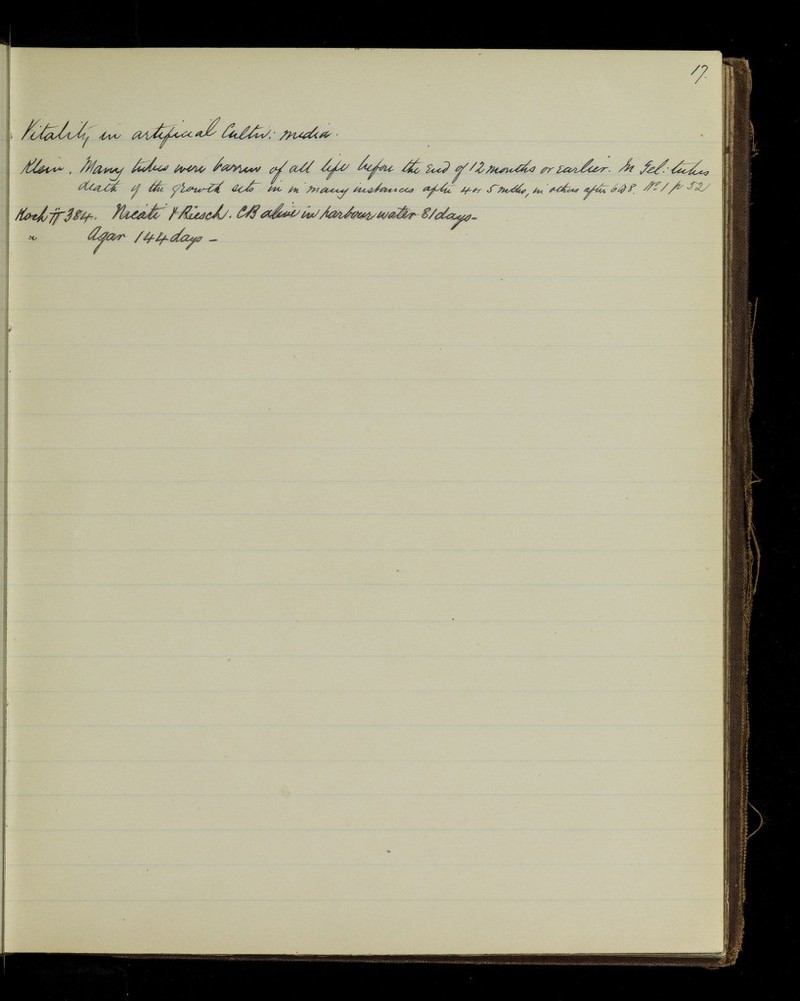 17.
Vitality in artificial Cultiv: media.
Klein. Many tubes were barren of all life before the end of 12 months or earlier. In Gel: tubes
death of the growth sets in in many instances after 4 or 5 mths, in others after 6 to 8. No 1 p 52
Koch 384. Nicati & Riesch. CB alive in harbour water 81 days -
" Agar 144 days -